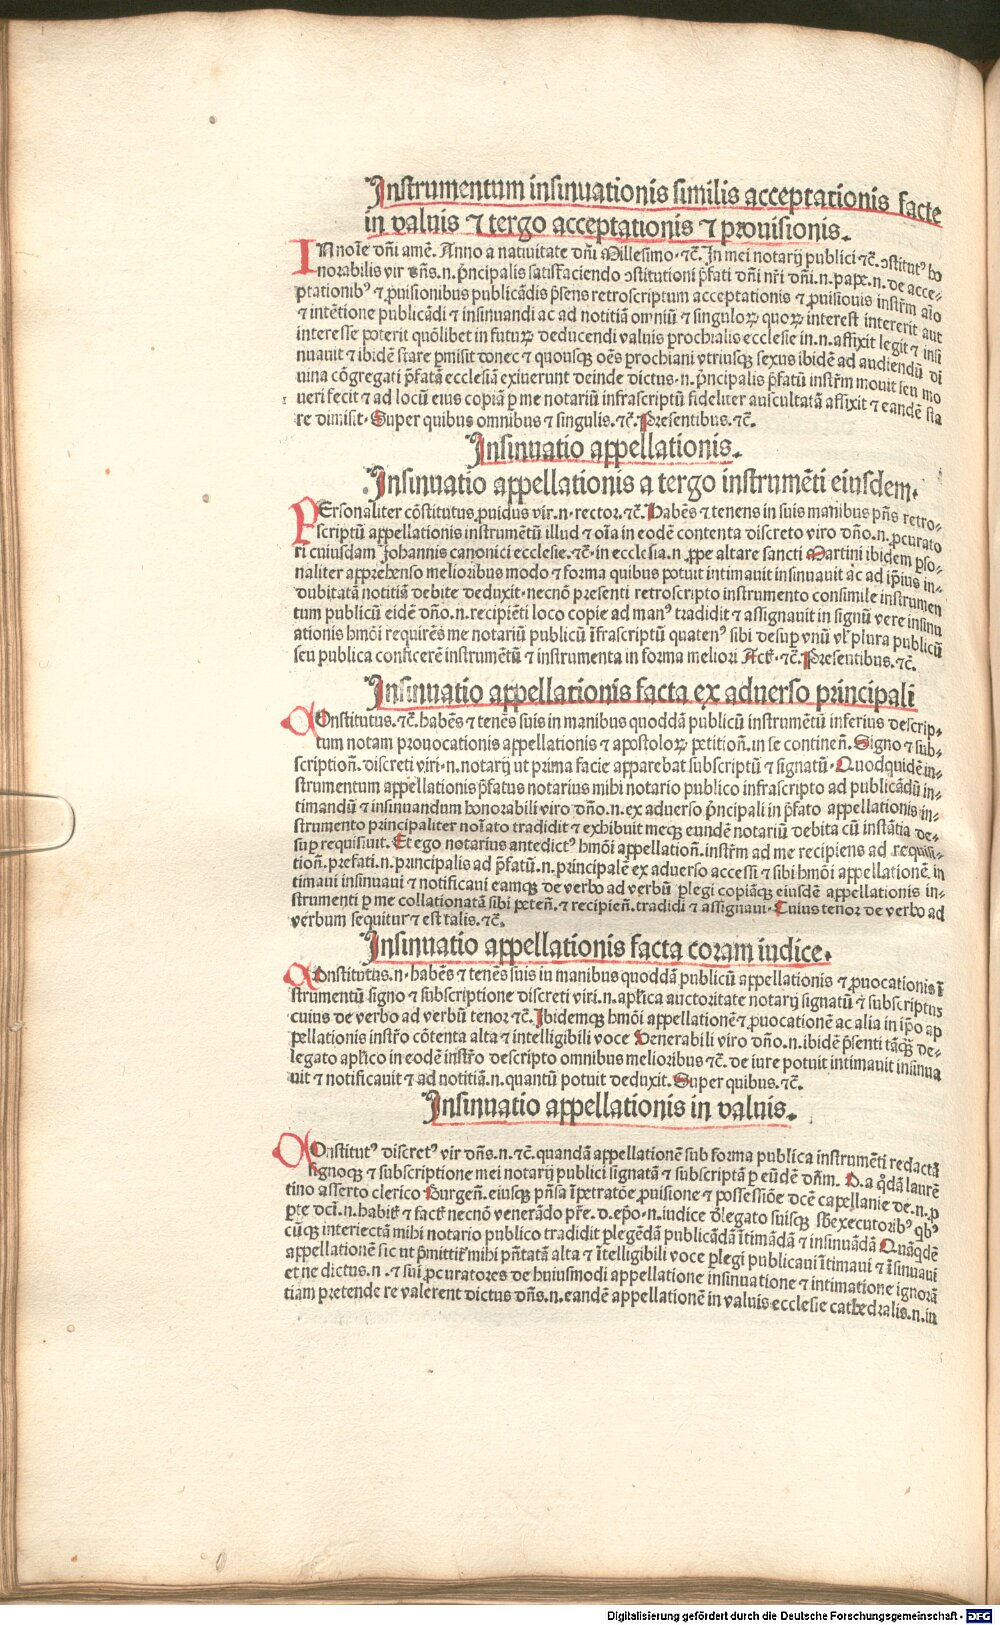 Instrumentum insinuationis similis acceptationis facte
in valuis ⁊ tergo acceptationis ⁊ prouisionis.
IN noĩe dñi amẽ. Anno a natiuitate dñi Millesimo. ⁊c̃. In mei notarij publici ⁊c̃. ↄstitutꝰ ho
norabilis vir dñs. n. p̃ncipalis satisfaciendo ↄstitutioni p̃fati dñi nr̃i dñi. n. pape. n. de acce⸗
ptationibꝰ ⁊ ꝓuisionibus publicãdis p̃sens retroscriptum acceptationis ⁊ ꝓuisionis instr̃m aĩo
⁊ intẽtione publicãdi ⁊ insinuandi ac ad notitiã omniũ ⁊ singuloꝝ quoꝝ interest intererit aut
interesse poterit quõlibet in futuꝝ deducendi valuis ꝑrochialis ecclesie in. n. affixit legit ⁊ insi
nuauit ⁊ ibidẽ stare ꝑmisit donec ⁊ quousqꝫ oẽs ꝑrochiani vtriusqꝫ sexus ibidẽ ad audiendũ di
uina cõgregati p̃fatã ecclesiã exiuerunt deinde dictus. n. p̃ncipalis p̃fatũ instr̃m mouit seu mo
ueri fecit ⁊ ad locũ eius copiã ꝑ me notariũ infrascriptũ fideliter auscultatã affixit ⁊ eandẽ sta
re dimisit. Super quibus omnibus ⁊ singulis. ⁊c̃. Presentibus. ⁊c̃.
Insinuatio appellationis.
Insinuatio appellationis a tergo instrumẽti eiusdem.
PErsonaliter cõstitutus ꝓuidus vir. n. rector. ⁊c̃. Habẽs ⁊ tenens in suis manibus pñs retro⸗
scriptũ appellationis instrumẽtũ illud ⁊ oĩa in eodẽ contenta discreto viro dño. n. ꝓcurato
ri cuiusdam Johannis canonici ecclesie. ⁊c̃. in ecclesia. n. ꝓpe altare sancti Martini ibidem ꝑso⸗
naliter apprehenso melioribus modo ⁊ forma quibus potuit intimauit insinuauit ac ad ip̃ius in⸗
dubitatã notitiã debite deduxit. necnõ presenti retroscripto instrumento consimile instrumen
tum publicũ eidẽ dño. n. recipiẽti loco copie ad manꝰ tradidit ⁊ assignauit in signũ vere insinu
ationis hmõi requirẽs me notariũ publicũ ĩfrascriptũ quatenꝰ sibi desuꝑ vnũ vl̃ plura publicũ
seu publica conficerẽ instrumẽtũ ⁊ instrumenta in forma meliori Actꝭ. ⁊c̃. Presentibus. ⁊c̃.
Insinuatio appellationis facta ex aduerso principali
COnstitutus. ⁊c̃. habẽs ⁊ tenẽs suis in manibus quoddã publicũ instrumẽtũ inferius descrip⸗
tum notam prouocationis appellationis ⁊ apostoloꝝ petitioñ. in se contineñ. Signo ⁊ sub⸗
scriptioñ. discreti viri. n. notarij ut prima facie apparebat subscriptũ ⁊ signatũ. Quodquidẽ in⸗
strumentum appellationis p̃fatus notarius mihi notario publico infrascripto ad publicãdũ in⸗
timandũ ⁊ insinuandum honorabili viro dño. n. ex aduerso p̃ncipali in p̃fato appellationis in⸗
strumento principaliter noĩato tradidit ⁊ exhibuit meqꝫ eundẽ notariũ debita cũ instãtia de⸗
suꝑ requisiuit. Et ego notarius antedictꝰ hmõi appellatioñ. instr̃m ad me recipiens ad requisi⸗
tioñ. prefati. n. principalis ad p̃fatũ. n. principalẽ ex aduerso accessi ⁊ sibi hmõi appellationẽ in
timaui insinuaui ⁊ notificaui eamqꝫ de verbo ad verbũ ꝑlegi copiãqꝫ eiusdẽ appellationis in⸗
strumenti ꝑ me collationatã sibi peteñ. ⁊ recipieñ. tradidi ⁊ assignaui. Cuius tenor de verbo ad
verbum sequitur ⁊ est talis. ⁊c̃.
Insinuatio appellationis facta coram iudice.
COnstitutus. n. habẽs ⁊ tenẽs suis in manibus quoddã publicũ appellationis ⁊ ꝓuocationis ĩ
strumentũ signo ⁊ subscriptione discreti viri. n. apl̃ica auctoritate notarij signatũ ⁊ subscriptus
cuius de verbo ad verbũ tenor ⁊c̃. Ibidemqꝫ hmõi appellationẽ ⁊ ꝓuocationẽ ac alia in ip̃o ap
pellationis instr̃o cõtenta alta ⁊ intelligibili voce Venerabili viro dño. n. ibidẽ p̃senti tãqꝫ de⸗
legato apl̃ico in eodẽ instr̃o descripto omnibus melioribus ⁊c̃. de iure potuit intimauit insinua
uit ⁊ notificauit ⁊ ad notitiã. n. quantũ potuit deduxit. Super quibus. ⁊c̃.
Insinuatio appellationis in valuis.
COnstitutꝰ discretꝰ vir dñs. n. ⁊c̃. quandã appellationẽ sub forma publica instrumẽti redactã
signoqꝫ ⁊ subscriptione mei notarij publici signatã ⁊ subscriptã ꝑ eũdẽ dñm. D. a q̃dã laurẽ
tino asserto clerico Burgeñ. eiusqꝫ pñsa ĩpetratõe ꝓuisione ⁊ possessiõe dcẽ capellanie de. n. ꝑ
ꝑte dcĩ. n. habitꝭ ⁊ factꝭ necnõ venerãdo pr̃e. d. ep̃o. n. iudice d̃legato suisqꝫ sb̃executoribꝰ qbꝰ
cũqꝫ interiectã mihi notario publico tradidit ꝑlegẽdã publicãdã ĩtimãdã ⁊ insinuãdã Quãqdẽ
appellationẽ sic ut p̃mittitꝭ mihi pñtatã alta ⁊ ĩtelligibili voce ꝑlegi publicaui ĩtimaui ⁊ ĩsinuaui
et ne dictus. n. ⁊ sui ꝓcuratores de huiusmodi appellatione insinuatione ⁊ intimatione ignorã
tiam pretende re valerent dictus dñs. n. eandẽ appellationẽ in valuis ecclesie cathedralis. n. in
Digitalisierung gefördert durch die Deutsche Forschungsgemeinschaft - DFG